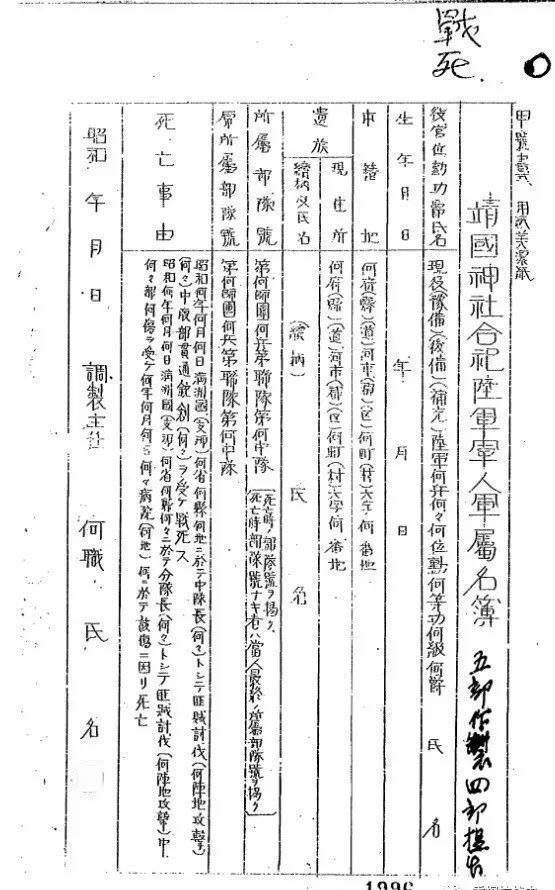 戰死.
甲號書式 用紙美濃紙
靖國神社合祀陸軍軍人軍屬名簿 五部作製四部提出
役官位勳功爵氏名 現役(豫備)(後備)(補充)陸軍何兵何々何位勳何等功何級何爵 氏 名
生年月日 年 月 日
本籍地 何府(縣)(道)何市(郡)(区)何町(村)大字何番地
遺族 現住所 何府(縣)(道)何市(郡)(区)何町(村)大字何番地
續柄及氏名 (續柄) 氏 名
所屬部隊號 第何師團何兵第聯隊第何中隊 死亡時ノ部隊號ヲ揭ク
死亡時部隊號ナキ者ハ當人最終ノ所屬部隊號ヲ揭ク
原所屬部隊號 第何師團何兵第聯隊第何中隊
死亡事由 昭和何年何月何日滿洲國(支那)何省何縣何地ニ於テ中隊長(何々)トシテ匪賊討伐(何陣地攻擊)
(何々)中 部貫通銃創(何々)ヲ受ケ戰死ス
昭和何年何月何日滿洲國(支那)何省何縣何々ニ於テ分隊長(何々)トシテ匪賊討伐(何陣地攻擊)中
何々部何傷ヲ受ケ何年何月何日何々病院(何地)何ニ於テ該傷ニ因リ死亡
昭和 年 月 日 調製主任 何職 氏 名
1996